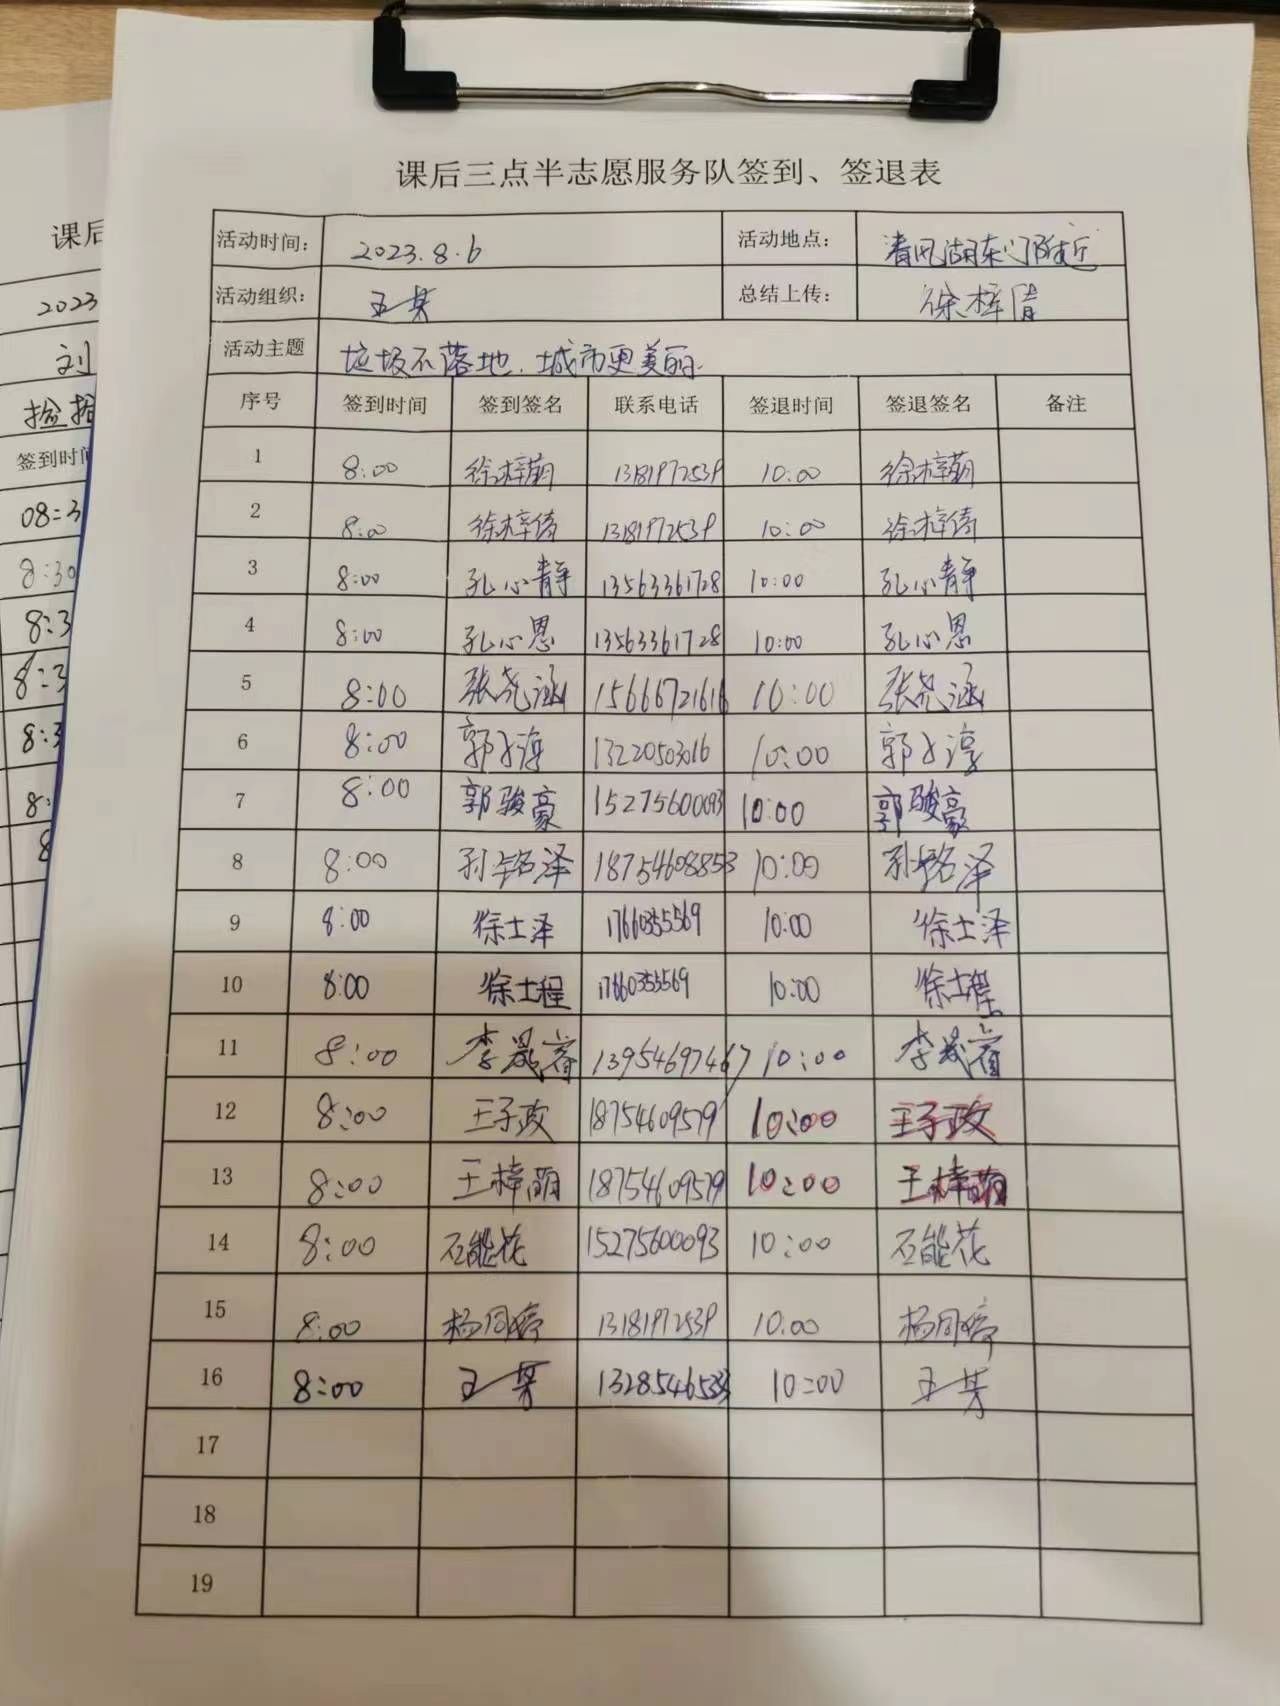 课后三点半志愿服务队签到、签退表
活动时间： 2023.8.6 活动地点： 清风湖东门附近
活动组织： 王某 总结上传： 徐梓倩
活动主题 垃圾不落地，城市更美丽.
序号 签到时间 签到签名 联系电话 签退时间 签退签名 备注
1 8:00 徐梓萌 13181972539 10:00 徐梓萌
2 8:00 徐梓倩 13181972539 10:00 徐梓倩
3 8:00 孔心静 13563361728 10:00 孔心静
4 8:00 孔心恩 13563361728 10:00 孔心恩
5 8:00 张尧涵 15666721616 10:00 张尧涵
6 8:00 郭 13220503016 10:00 郭
7 8:00 郭骏豪 15275600093 10:00 郭骏豪
8 8:00 孙铭泽 18754608853 10:00 孙铭泽
9 8:00 徐士泽 17660355569 10:00 徐士泽
10 8:00 徐士程 17660355569 10:00 徐士程
11 8:00 李晟睿 13954697467 10:00 李晟睿
12 8:00 王子政 18754609579 10:00 王子政
13 8:00 王梓萌 18754609579 10:00 王梓萌
14 8:00 石能花 15275600093 10:00 石能花
15 8:00 杨同婷 13181972539 10:00 杨同婷
16 8:00 王某 10:00 王某
17
18
19
课后
2023
刘
签到时间
08:3
8:30
8:3
8:3
8:3
8:
8